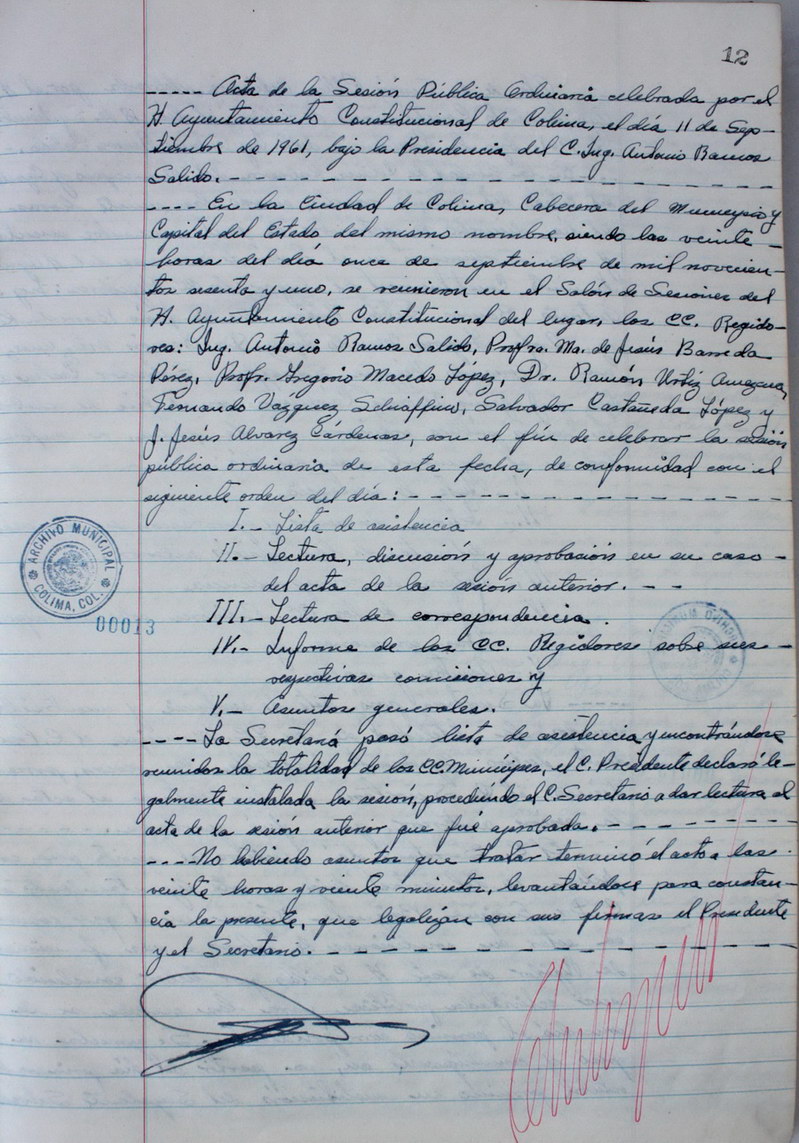 12
----- Acta de la Sesión Pública Ordinaria celebrada por el
H. Ayuntamiento Constitucional de Colima, el día 11 de Sep-
tiembre de 1961, bajo la Presidencia del C. Ing. Antonio Ramos
Salido. - - - - - - - - - - - - - - - - - - - -
---- En la Ciudad de Colima, Cabecera del Municipio y
Capital del Estado del mismo nombre, siendo las veinte -
horas del día once de septiembre de mil novecien-
tos sesenta y uno, se reunieron en el Salón de Sesiones del
H. Ayuntamiento Constitucional del lugar, los CC. Regido-
res: Ing. Antonio Ramos Salido, Profra. Ma. de Jesús Barreda
Pérez, Profr. Gregorio Macedo López, Dr. Ramón Urtiz
Fernando Vázquez Schiaffino, Salvador Castañeda López y
J. Jesús Alvarez Cárdenas, con el fin de celebrar la sesión
pública ordinaria de esta fecha, de conformidad con el
siguiente orden del día: - - - - - - - - - - - - - -
I.- Lista de asistencia
II.- Lectura, discusión y aprobación en su caso -
del acta de la sesión anterior. - - -
ARCHIVO MUNICIPAL
COLIMA, COL.
00013
III.- Lectura de correspondencia.
IV.- Informe de los CC. Regidores sobre sus -
respectivas comisiones y
V.- Asuntos generales.
---- La Secretaría pasó lista de asistencia y encontrándose
reunidos la totalidad de los CC. Munícipes, el C. Presidente declaró le-
galmente instalada la sesión, procediendo el C. Secretario a dar lectura al
acta de la sesión anterior que fué aprobada. - - - - - - - -
---- No habiendo asuntos que tratar terminó el acto a las -
veinte horas y veinte minutos, levantándose para constan-
cia la presente, que legalizan con sus firmas el Presidente
y el Secretario. - - - - - - - - - - - - - - - - -